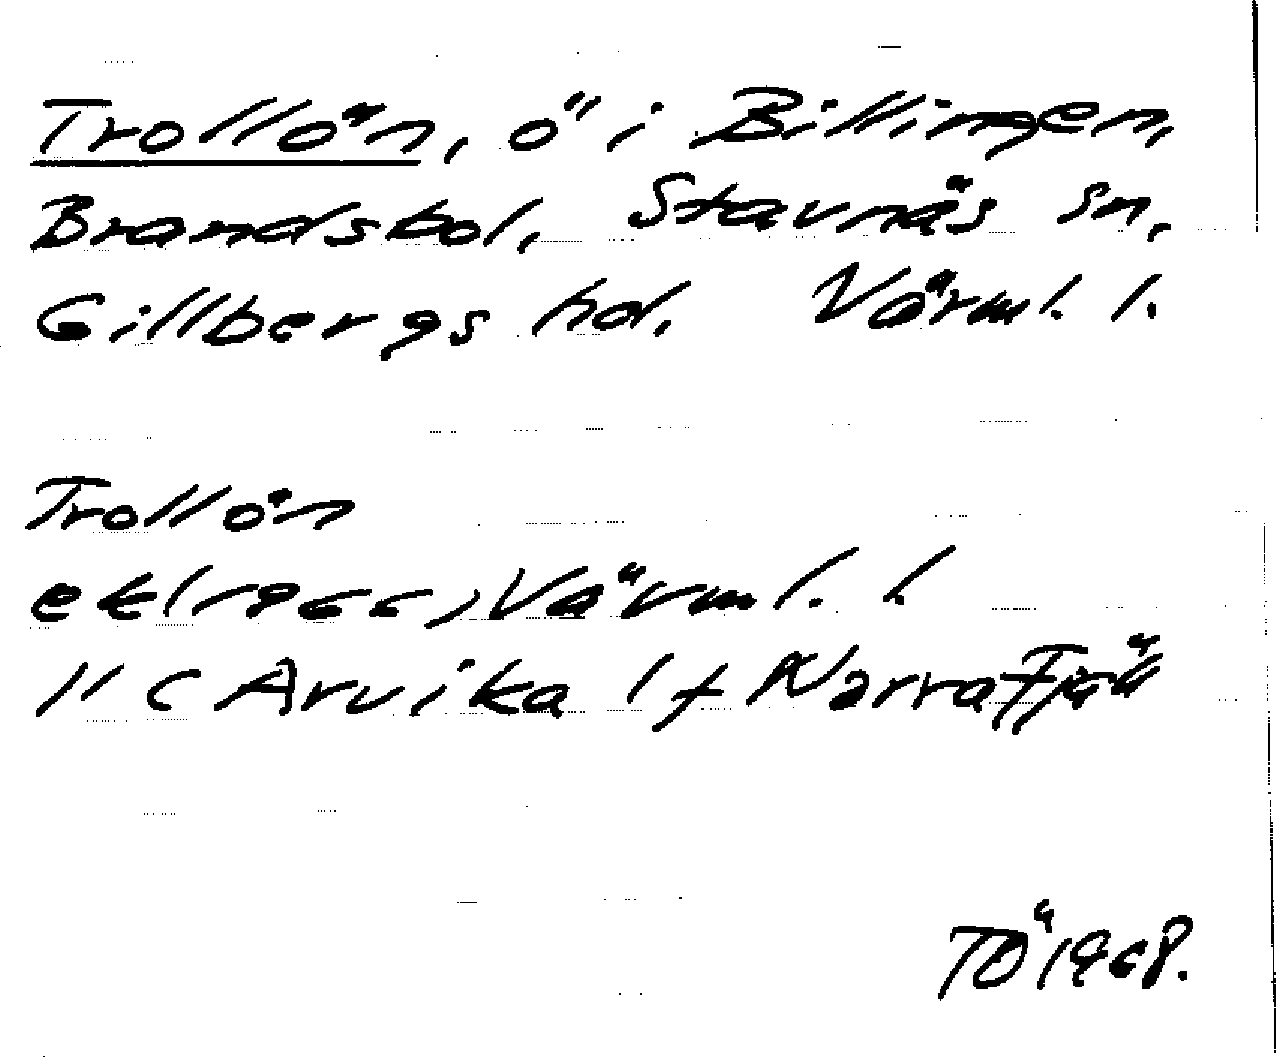 Trollön, ö i Billingen,
Brandsbol, Stavnäs sn,
Gillbergs hd. Värml. l.
Trollön
ek(1966) Värml. l.
11 C Arvika 1 f Norra Fjöll
TÖ 1968.